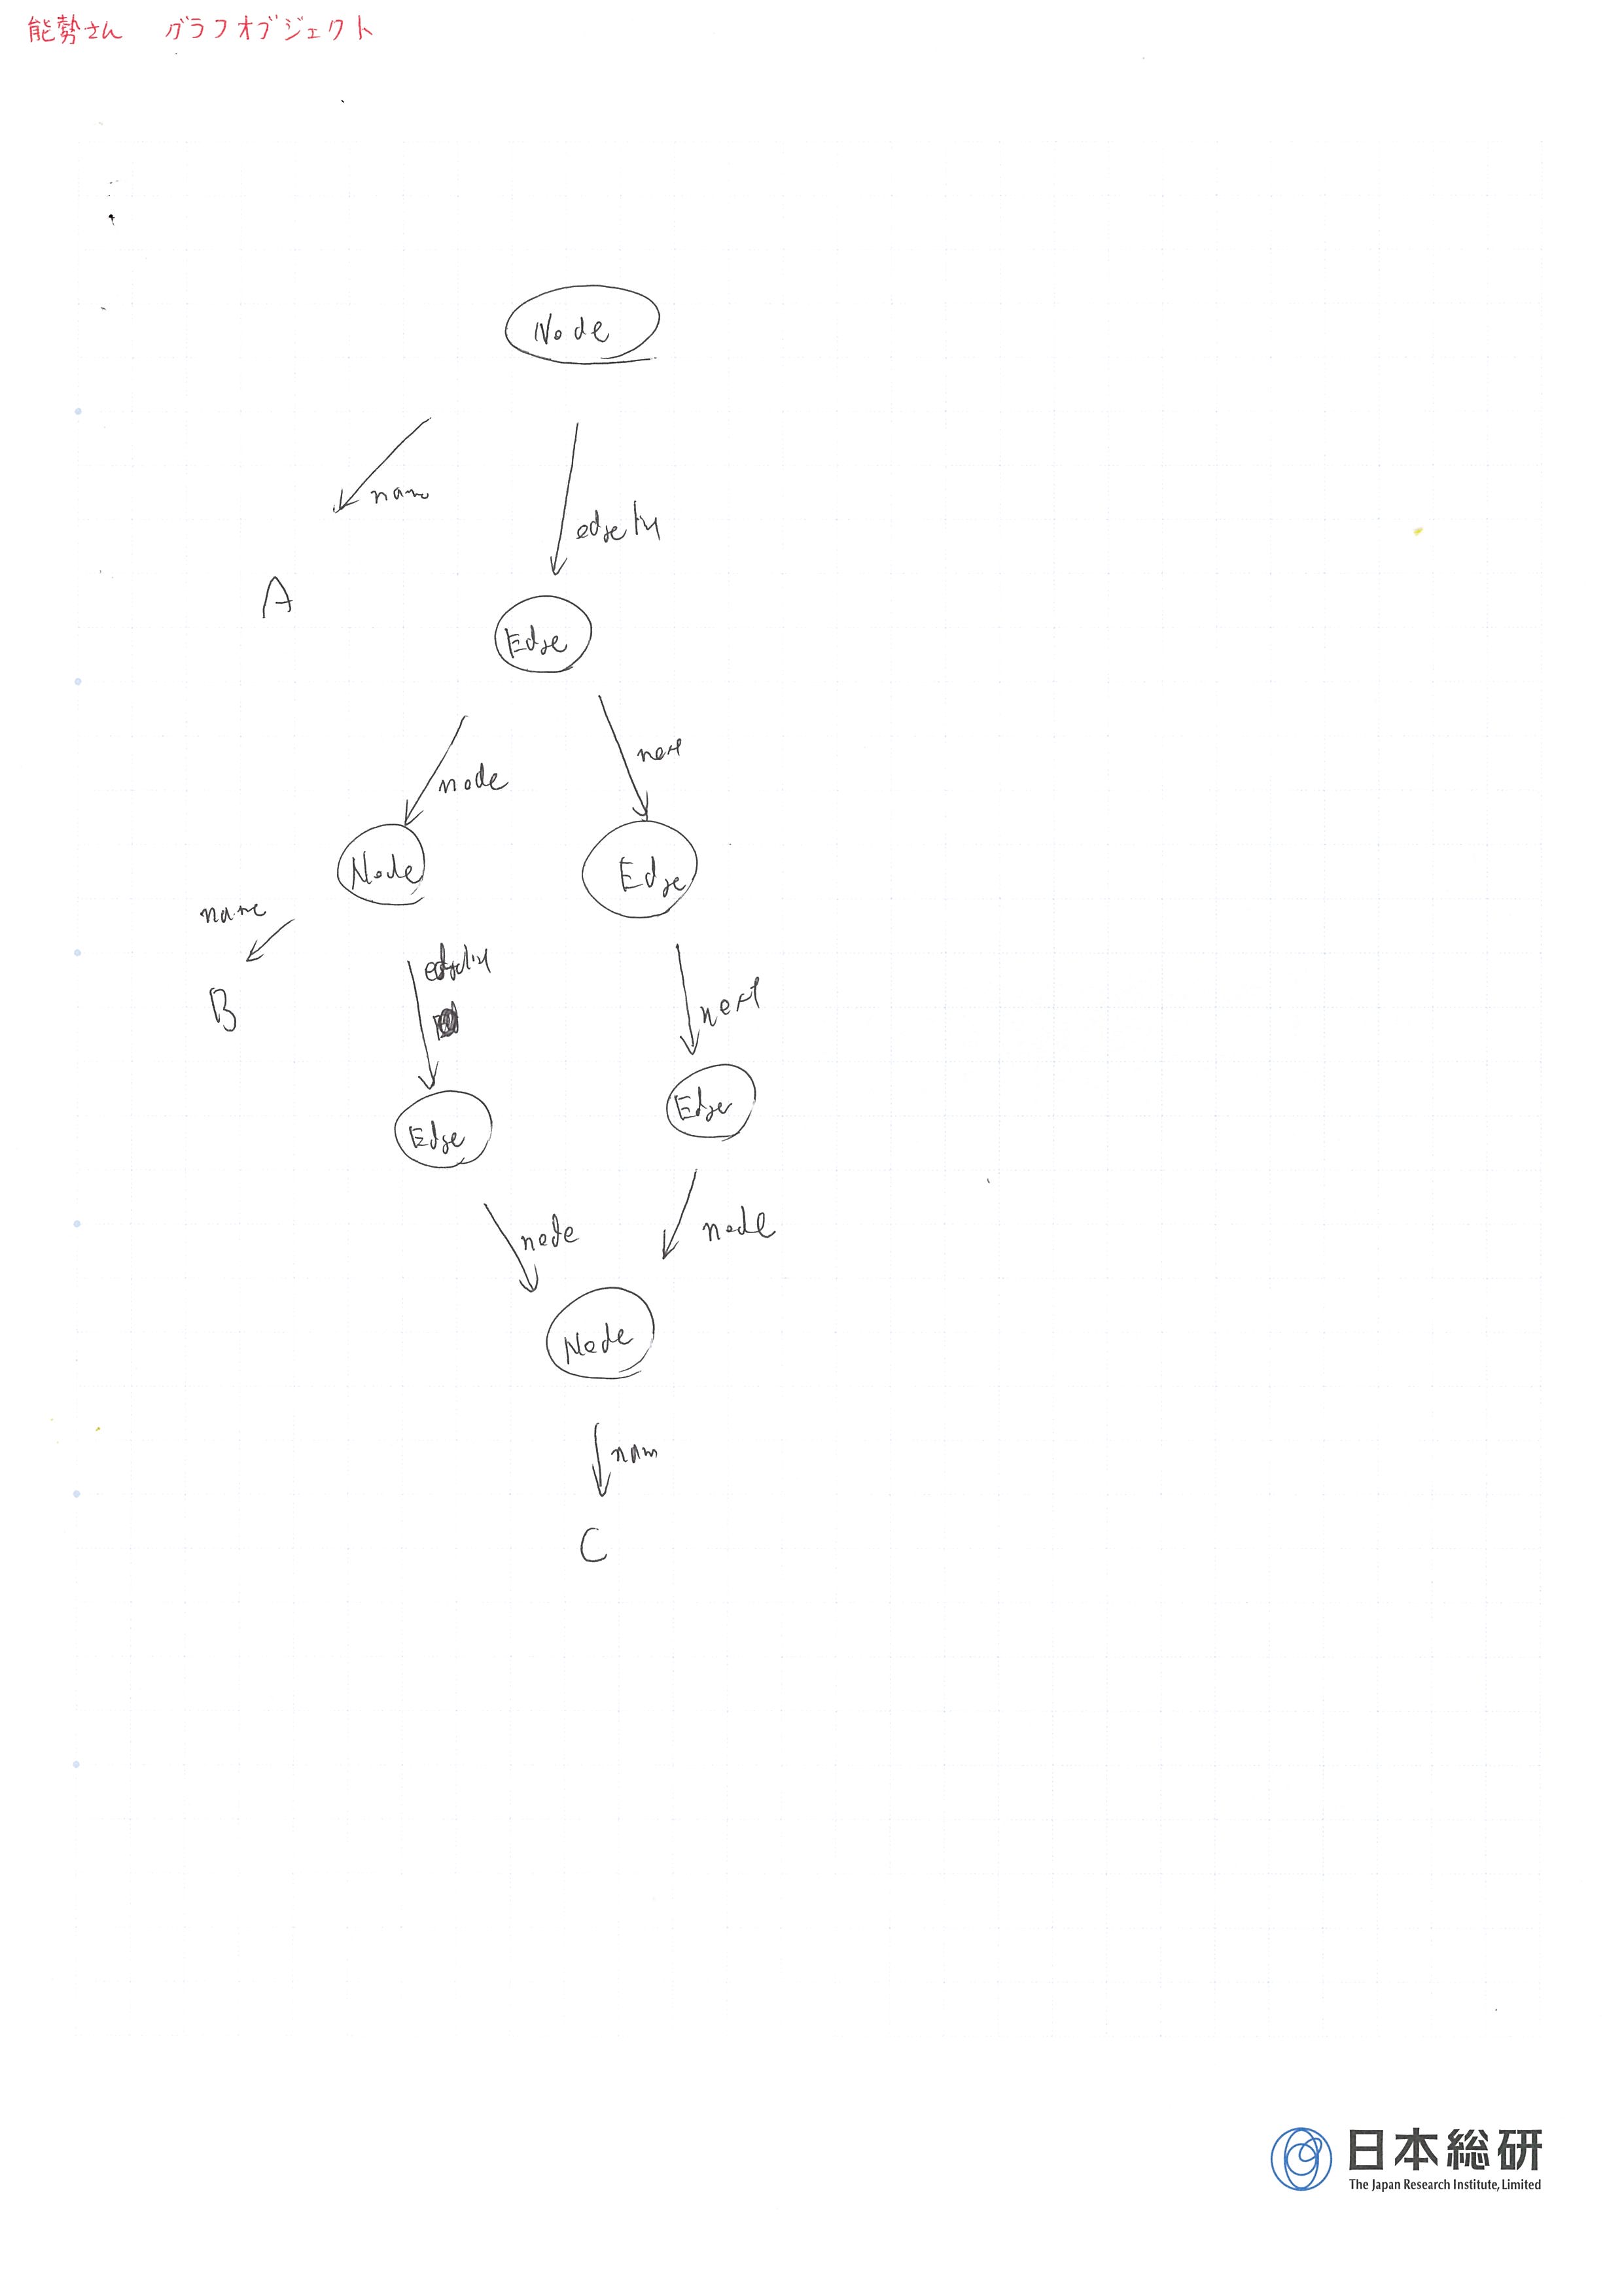 能勢さん グラフオブジェクト
Node
name
A
Edge
node
next
Node
Edge
name
B
next
Edge
Edge
node
node
Node
C
日本総研
The Japan Research Institute, Limited